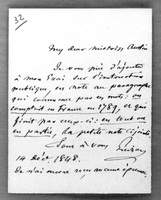 32
My dear
Je vous prie d'ajouter
à mon Essai sur l'instruction
publique, en note au paragraphe
qui commence par ces mots: on
comptait en France en 1789, et qui
finit par ceux-ci: en tout ou
en partie, la petite note ci-jointe
Tout à vous
14 Déc. 1848.
Je n'ai encore reçu aucune épreuve